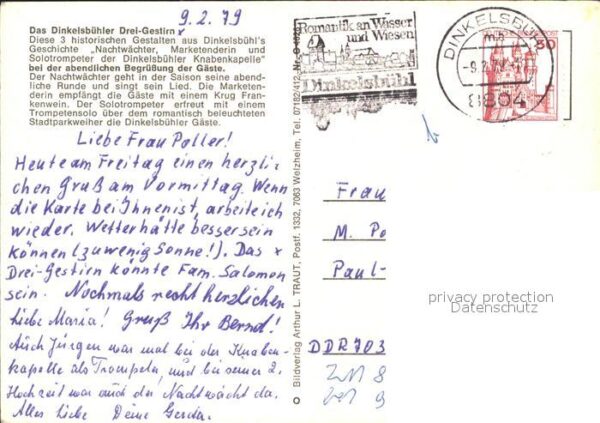 9.2.79
Das Dinkelsbühler Drei-Gestirn x
Diese 3 historischen Gestalten aus Dinkelsbühl's
Geschichte „Nachtwächter, Marketenderin und
Solotrompeter der Dinkelsbühler Knabenkapelle"
bei der abendlichen Begrüßung der Gäste.
Der Nachtwächter geht in der Saison seine abend-
liche Runde und singt sein Lied. Die Marketen-
derin empfängt die Gäste mit einem Krug Fran-
kenwein. Der Solotrompeter erfreut mit einem
Trompetensolo über dem romantisch beleuchteten
Stadtparkweiher die Dinkelsbühler Gäste.
Liebe Frau Poller!
Heute am Freitag einen herzli-
chen Gruß am Vormittag. Wenn
die Karte bei Ihnen ist, arbeite ich
wieder. Wetter hätte besser sein
können (zu wenig Sonne!). Das x
Drei-Gestirn könnte Fam. Salomon
sein. Nochmals recht herzlichen
Liebe Maria! Gruß Ihr Bernd!
Auch Jürgen war mal bei der Knaben-
kapelle als Trompeter, und bei seiner 2.
Hochzeit war auch der Nachtwächter da.
Alles Liebe Deine Gerda.
Bildverlag Arthur L. TRAUT, Postf. 1332, 7063 Welzheim, Tel. 07182/412
Romantik an Wasser
und Wiesen
Dinkelsbühl
DINKELSBÜHL
mb
8804
50
Frau
M. Po
Paul-
DDR 703
privacy protection
Datenschutz